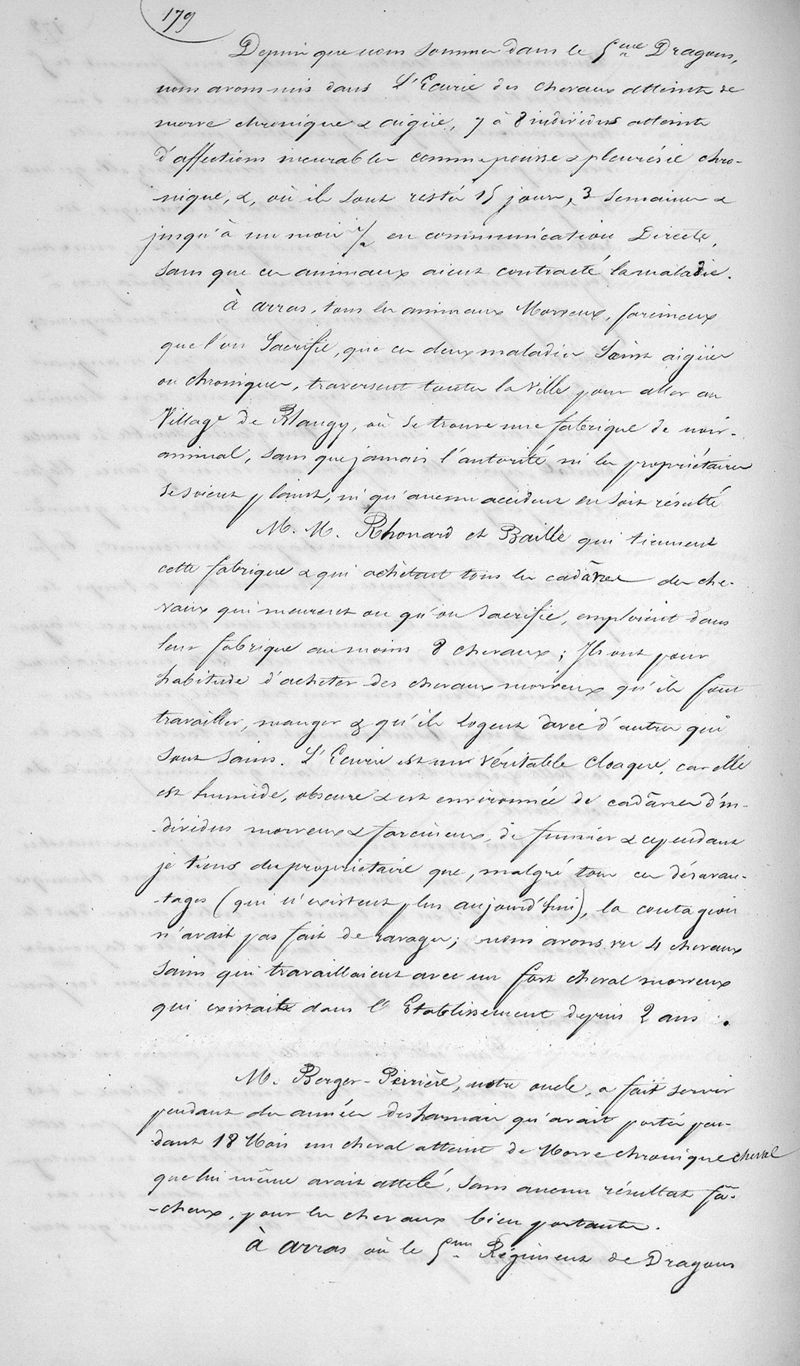 179
Depuis que nous sommes dans le 5eme Dragons,
nous avons mis dans l'Ecurie des chevaux atteints de
morve chronique & aigüe, 7 à 8 individus atteints
d'affections incurables comme pousse & pleurésie chro-
nique, &, où ils sont restés 15 jours, 3 semaines &
jusqu'à un mois 1/2 en communication Directe,
sans que ces animaux aient contracté la maladie.
à arras, tous les animaux Morveux, farcineux
que l'on Sacrifie, que ces deux maladies Soient aigües
ou chroniques, traversent toute la ville pour aller au
Village de Blangy, où se trouve une fabrique de noir-
animal, sans que jamais l'autorité ni les propriétaires
se soient plaint, ni qu'aucun accident en soit résulté
M. M. Rhonard et Baille qui tiennent
cette fabrique & qui achètent tous les cadâvres des che-
vaux qui meurent ou qu'on sacrifie, emploient dans
leur fabrique au moins 8 chevaux; Ils ont pour
habitude d'acheter des chevaux morveux qu'ils font
travailler, manger & qu'ils logent avec d'autres qui
sont sains. L'Ecurie est un véritable cloaque, car elle
est humide, obscure & est environnée de cadâvres d'in-
-dividus morveux & farcineux, de fumier & cependant
je tiens du propriétaire que, malgré tous ces désavan-
-tages (qui n'existent plus aujourd'hui), la contagion
n'avait pas fait de ravages; nous avons vu 4 chevaux
sains qui travaillaient avec un fort cheval morveux
qui existait dans l'Etablissement depuis 2 ans.
M. Berger-Perrière, notre oncle, a fait servir
pendant des années des harnais qu'avait porté pen-
dant 18 Mois un cheval atteint de Morve chronique cheval
que lui même avait attelé, sans aucun résultat fâ-
-cheux, pour les chevaux bien portants.
à arras où le 5eme Régiment de Dragons